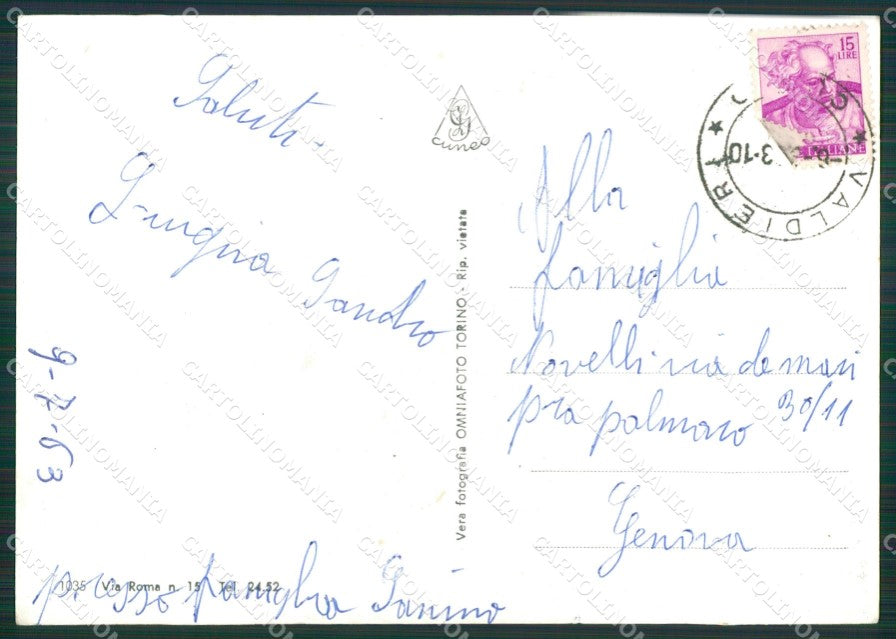 Saluti
Luigina Sandro
9-7-63
presso famiglia Panino
1035 Via Roma n. 15 Tel. 24.52
cuneo
Vera fotografia OMNIAFOTO TORINO - Rip. vietata
15
LIRE
ITALIANE
VALDIERI
Alla
famiglia
Novelli via de mari
pra palmaro 30/11
Genova
CARTOLINOMANIA